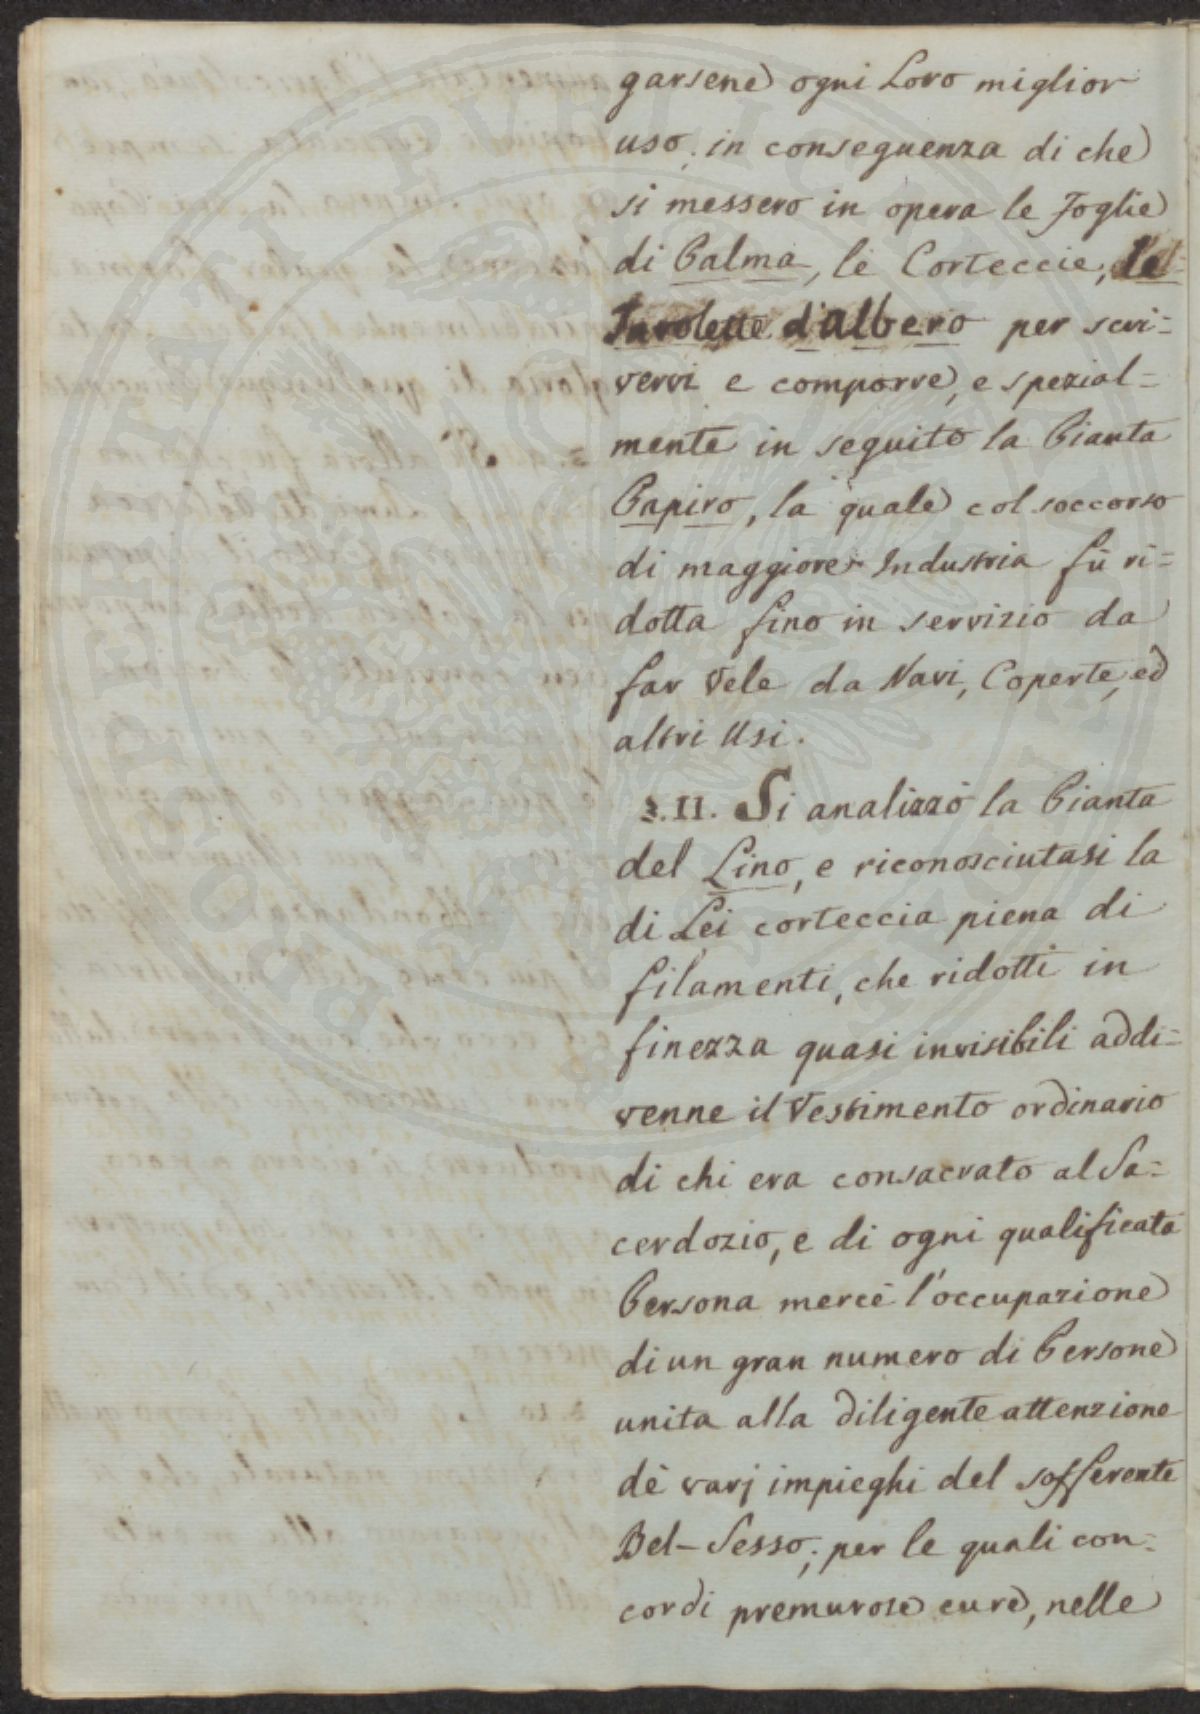 garsene ogni Loro miglior
uso; in conseguenza di che
si messero in opera le Foglie
di Palma, le Corteccie, le
Tavolette d'albero per scri=
vervi e comporre, e spezial=
mente in seguito la Pianta
Papiro, la quale col soccorso
di maggiore Industria fù ri=
dotta fino in servizio da
far Vele da Navi, Coperte, ed
altri Usi.
§.II. Si analizzò la Pianta
del Lino, e riconosciutasi la
di Lei corteccia piena di
filamenti, che ridotti in
finezza quasi invisibili addi=
venne il Vestimento ordinario
di chi era consacrato al Sa=
cerdozio, e di ogni qualificata
Persona mercè l'occupazione
di un gran numero di Persone
unita alla diligente attenzione
dè varj impieghi del sofferente
Bel-Sesso; per le quali con=
cordi premurose cure, nelle